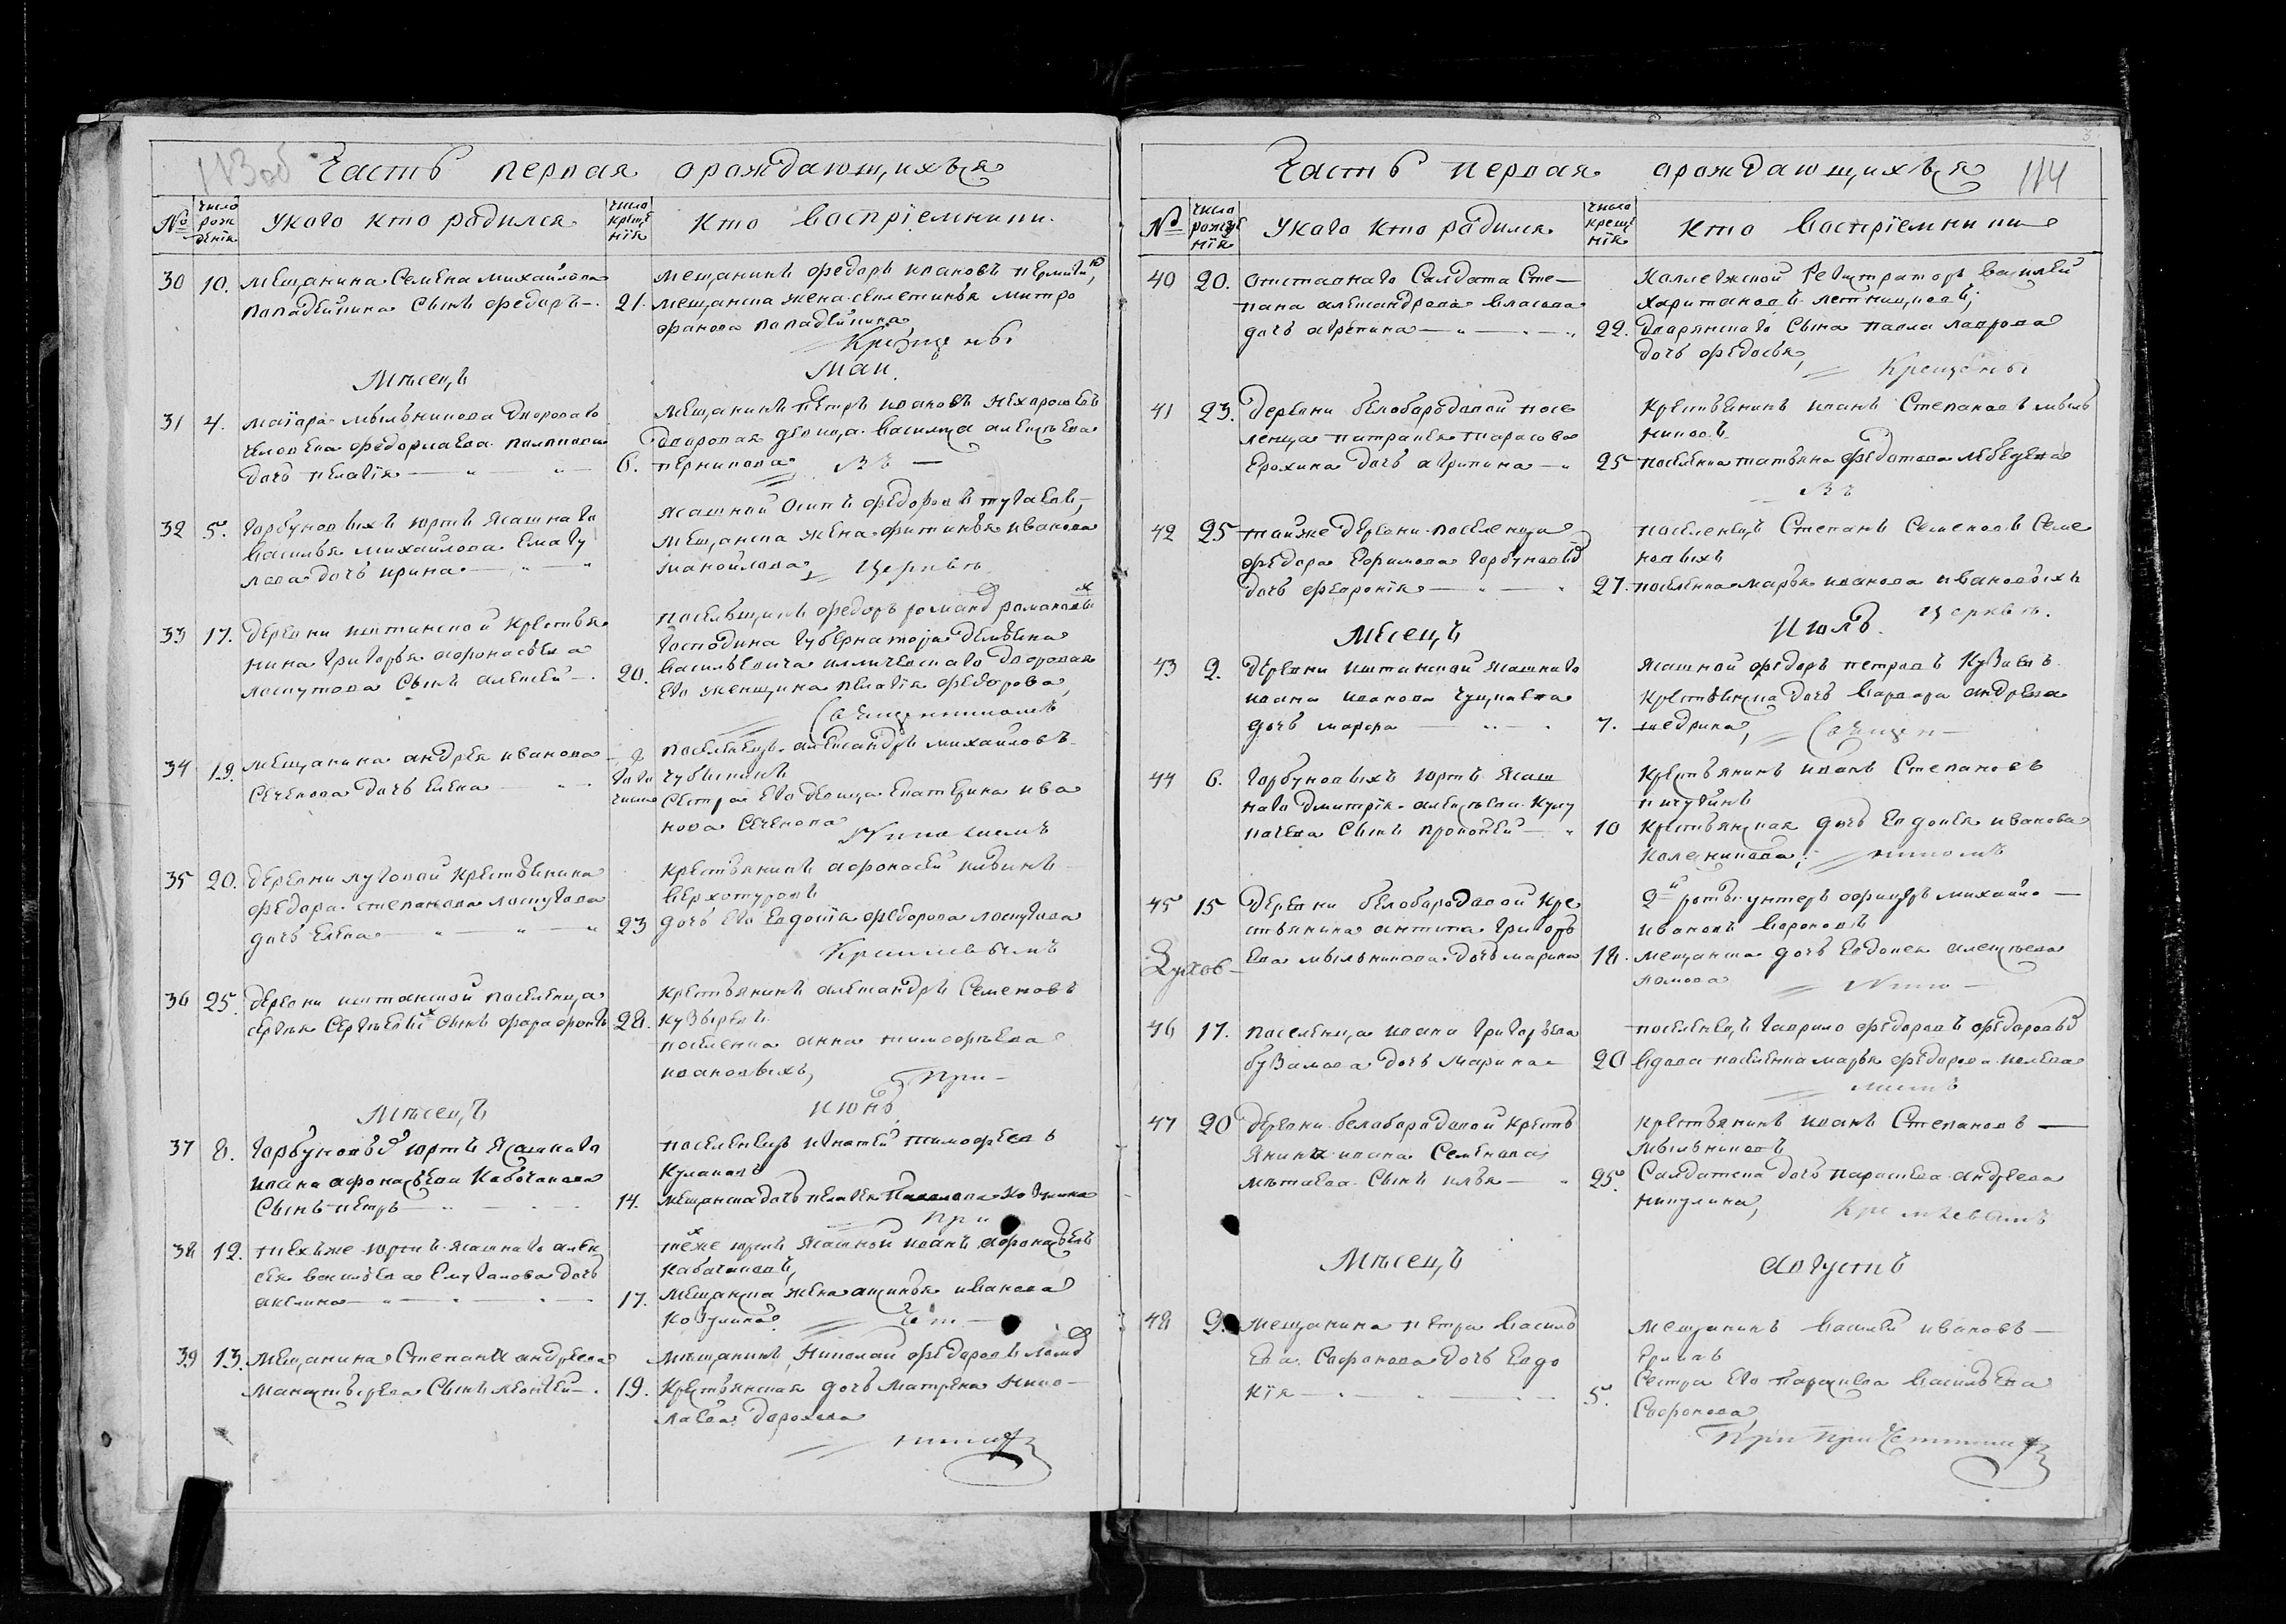 113об
Часть первая ораждающихъся
№ число рож дения У кого кто радился число креще ния Кто васприемники
30 10. Мещанина Семена Михайлова
Пападейкина сынъ Федоръ
21.
Мещанинъ Федоръ Ивановъ
мещанска жена Секлетинья Митро
фанова Пападейкина
Крещены
Месецъ Маи
31 4. Маiора Мыльникова двороваго
человека
дочь Пелагiя
6.
Мещанинъ Петръ Ивановъ Нехорошевъ
Дворовая девица Василиса Алексѣева
Пермикова
Въ
32 5. Горбуновыхъ юртъ ясашнаго
Василья Михайлова Емагу
лова дочь Ирина
Ясашной Осипъ Федоровъ Тугаевъ
мещанска жена Фитинья Иванова
Манойлова, церьквѣ
33 17. Деревни Иштинской крестья
нина Григорья Афонасьева
Ласкутова сынъ Алексей
20.
Посельщикъ Федоръ
Господина губернатора Демьяна
Васильевича Илличевскаго дворовая
ево женщина Пелагiя Федорова,
Священникомъ
34 19. Мещанина Андрея Иванова
Сеченова дочь Елена
того числа
Поселенецъ Александръ Михайловъ
Чубыкинъ
Сестра ево девица Екатерина Ива
нова Сеченова
35 20. Деревни Луговой крестьянина
Федора Степанова Ласкутова
дочь Елена
23
Крестьянинъ Афонасей Ильинъ
Верхотуровъ
дочь ево Евдокiя Федорова Ласкутова
36 25. Деревни Иштанской поселенца
Сергея сынъ Фарафонтъ
28.
Крестьянинъ Александръ Семеновъ
Кузыревъ
поселенка Анна Тимофѣева
Ивановыхъ,
При
Месецъ Июнь
37 8. Горбуновыхъ юртъ ясашнаго
Ивана Афонасьева Кабочакова
сынъ Петръ
14.
Поселенецъ Игнатей Тимофѣевъ
Кулаковъ
мещанска дочь Пелагея
При
38 12. Техъже юртъ ясашнаго Алек
сея Васильева Емугачова дочь
Акелина
17.
Техже юртъ ясашной Иванъ Афонасьевъ
Кабочаковъ,
Мещанска жена Аксинья Иванова
Когулина
Чет
39 13. Мещанина Степана Андреева
сынъ Алексей
19.
Мещанинъ Николай Федоровъ
Крестьянская дочь Матрена Нико
лаева Дорохова
никъ
114
Часть первая ораждающихъся
№ число рожде ния У кого кто радился число креще ния Кто васприемники
40 20. Отставнаго салдата Сте
пана Александрова Власова
дочь Агрепина
22.
Каллежской регистраторъ Василей
Харитоновъ Летницковъ;
дворянскаго сына Павла Лаврова
дочь Федосья,
Крещены
41 23. Деревни Белобородовой посе
ленца Патракея Тарасова
Ерохина дочь Агрипина
25
Крестьянинъ Иванъ Степановъ Мыль
никовъ
поселенка Татьяна Федотова Лебедева
Въ
42 25 Тойже деревни поселенца
Федора Ефимова Горбуновыхъ
дочь Февронiя
27.
Поселенецъ Степанъ Семеновъ Семе
новыхъ
поселенка Марья Иванова Ивановыхъ
церквѣ.
Месецъ Июль
43 2. Деревни Иштанской ясашнаго
Ивана Иванова
дочь Марфа
7.
Ясашной Федоръ Петровъ Кузаевъ
Крестьянска дочь Варвара Андреева
Шедрина, Священ
44 6. Горбуновыхъ юртъ ясаш
наго Дмитрiя Алексѣева
сынъ Прокопей
10
Крестьянинъ Иванъ Степановъ
Пичугинъ
Крестьянская дочь Евдокея Иванова
Коленикова;
никомъ
45 15 Деревни Белобородовой кре
стьянина Антипа Григорь
ева Мыльникова дочь Марина
18.
2й роты унтеръ офицеръ Михайло
Ивановъ Вороновъ
Мещанска дочь Евдокея Алексѣева
Ламова
46 17. Поселенца Ивана Григорьева
Бузамова дочь Марина
20
Поселенецъ Гаврило Федоровъ Федоровыхъ
Вдова поселенка Марья Федорова
47 20 Деревни Белабарадовой кресть
янина Ивана Семенова
сынъ Илья
25.
Крестьянинъ Иванъ Степановъ
Мыльниковъ
Салдатска дочь Парасковья Андреева
Никулина,
Месецъ Августъ
48 2. Мещанина Петра Василь
ева Сафонова дочь Евдо
кiя
5.
Мещанинъ Василей Ивановъ
Сестра ево Параскева Васильева
Сафонова
При Причетникахъ